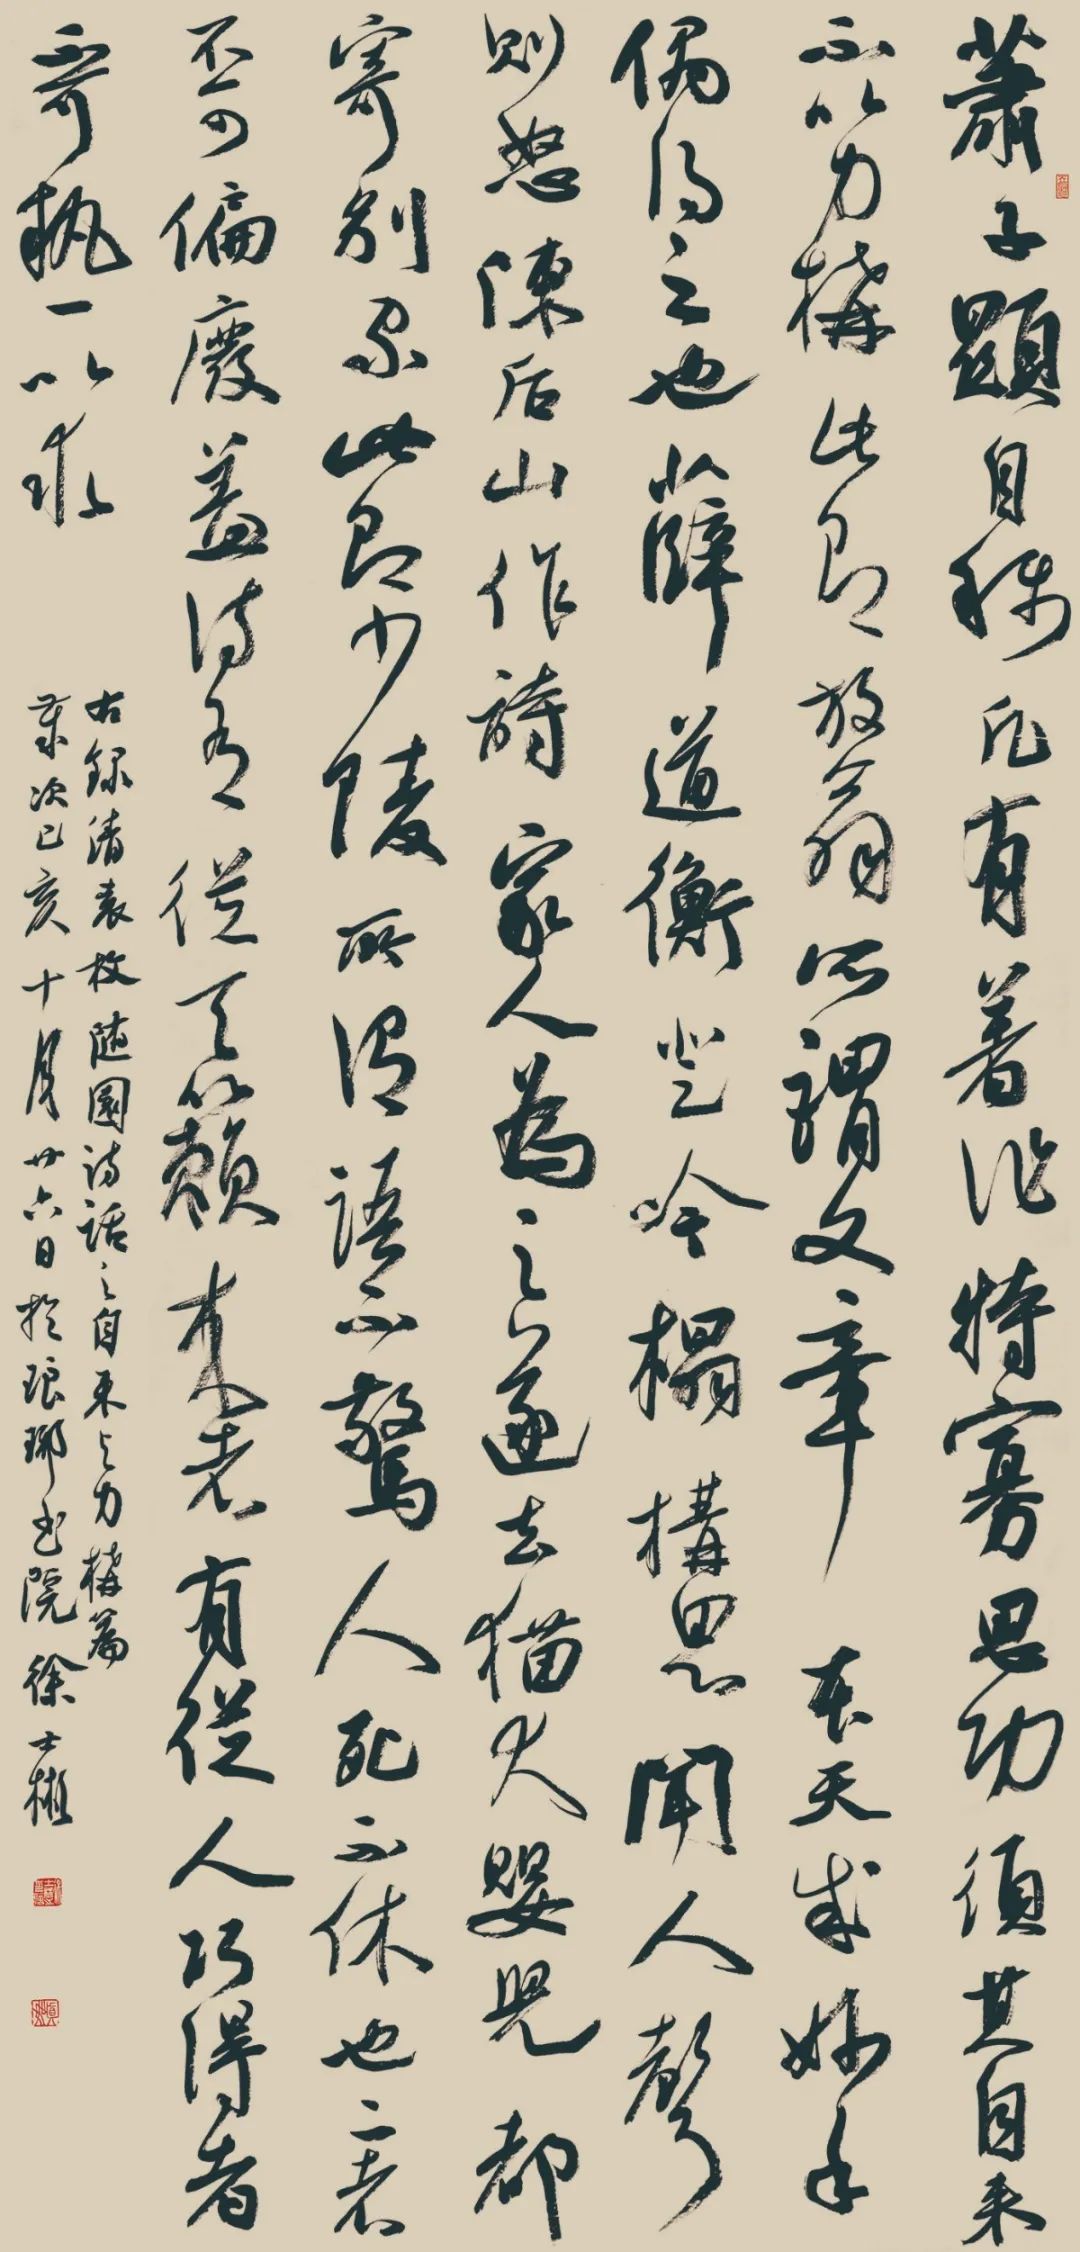 蕭子顯自稱凡有著作特寡思功須其自来
不以力構此即放翁所謂文章本天成妙手
偶得之也薛道衡登吟榻構思聞人聲
則怒陳后山作詩家人為之逐去猫犬嬰児都
寄别家此即少陵所謂語不驚人死不休也二者
不可偏廢盖诗有從天籟来者有從人巧得者
不可執一以求
右録清袁枚随園诗話之自来与力構篇
歲次己亥十月廿六日於琅琊书院徐士彬